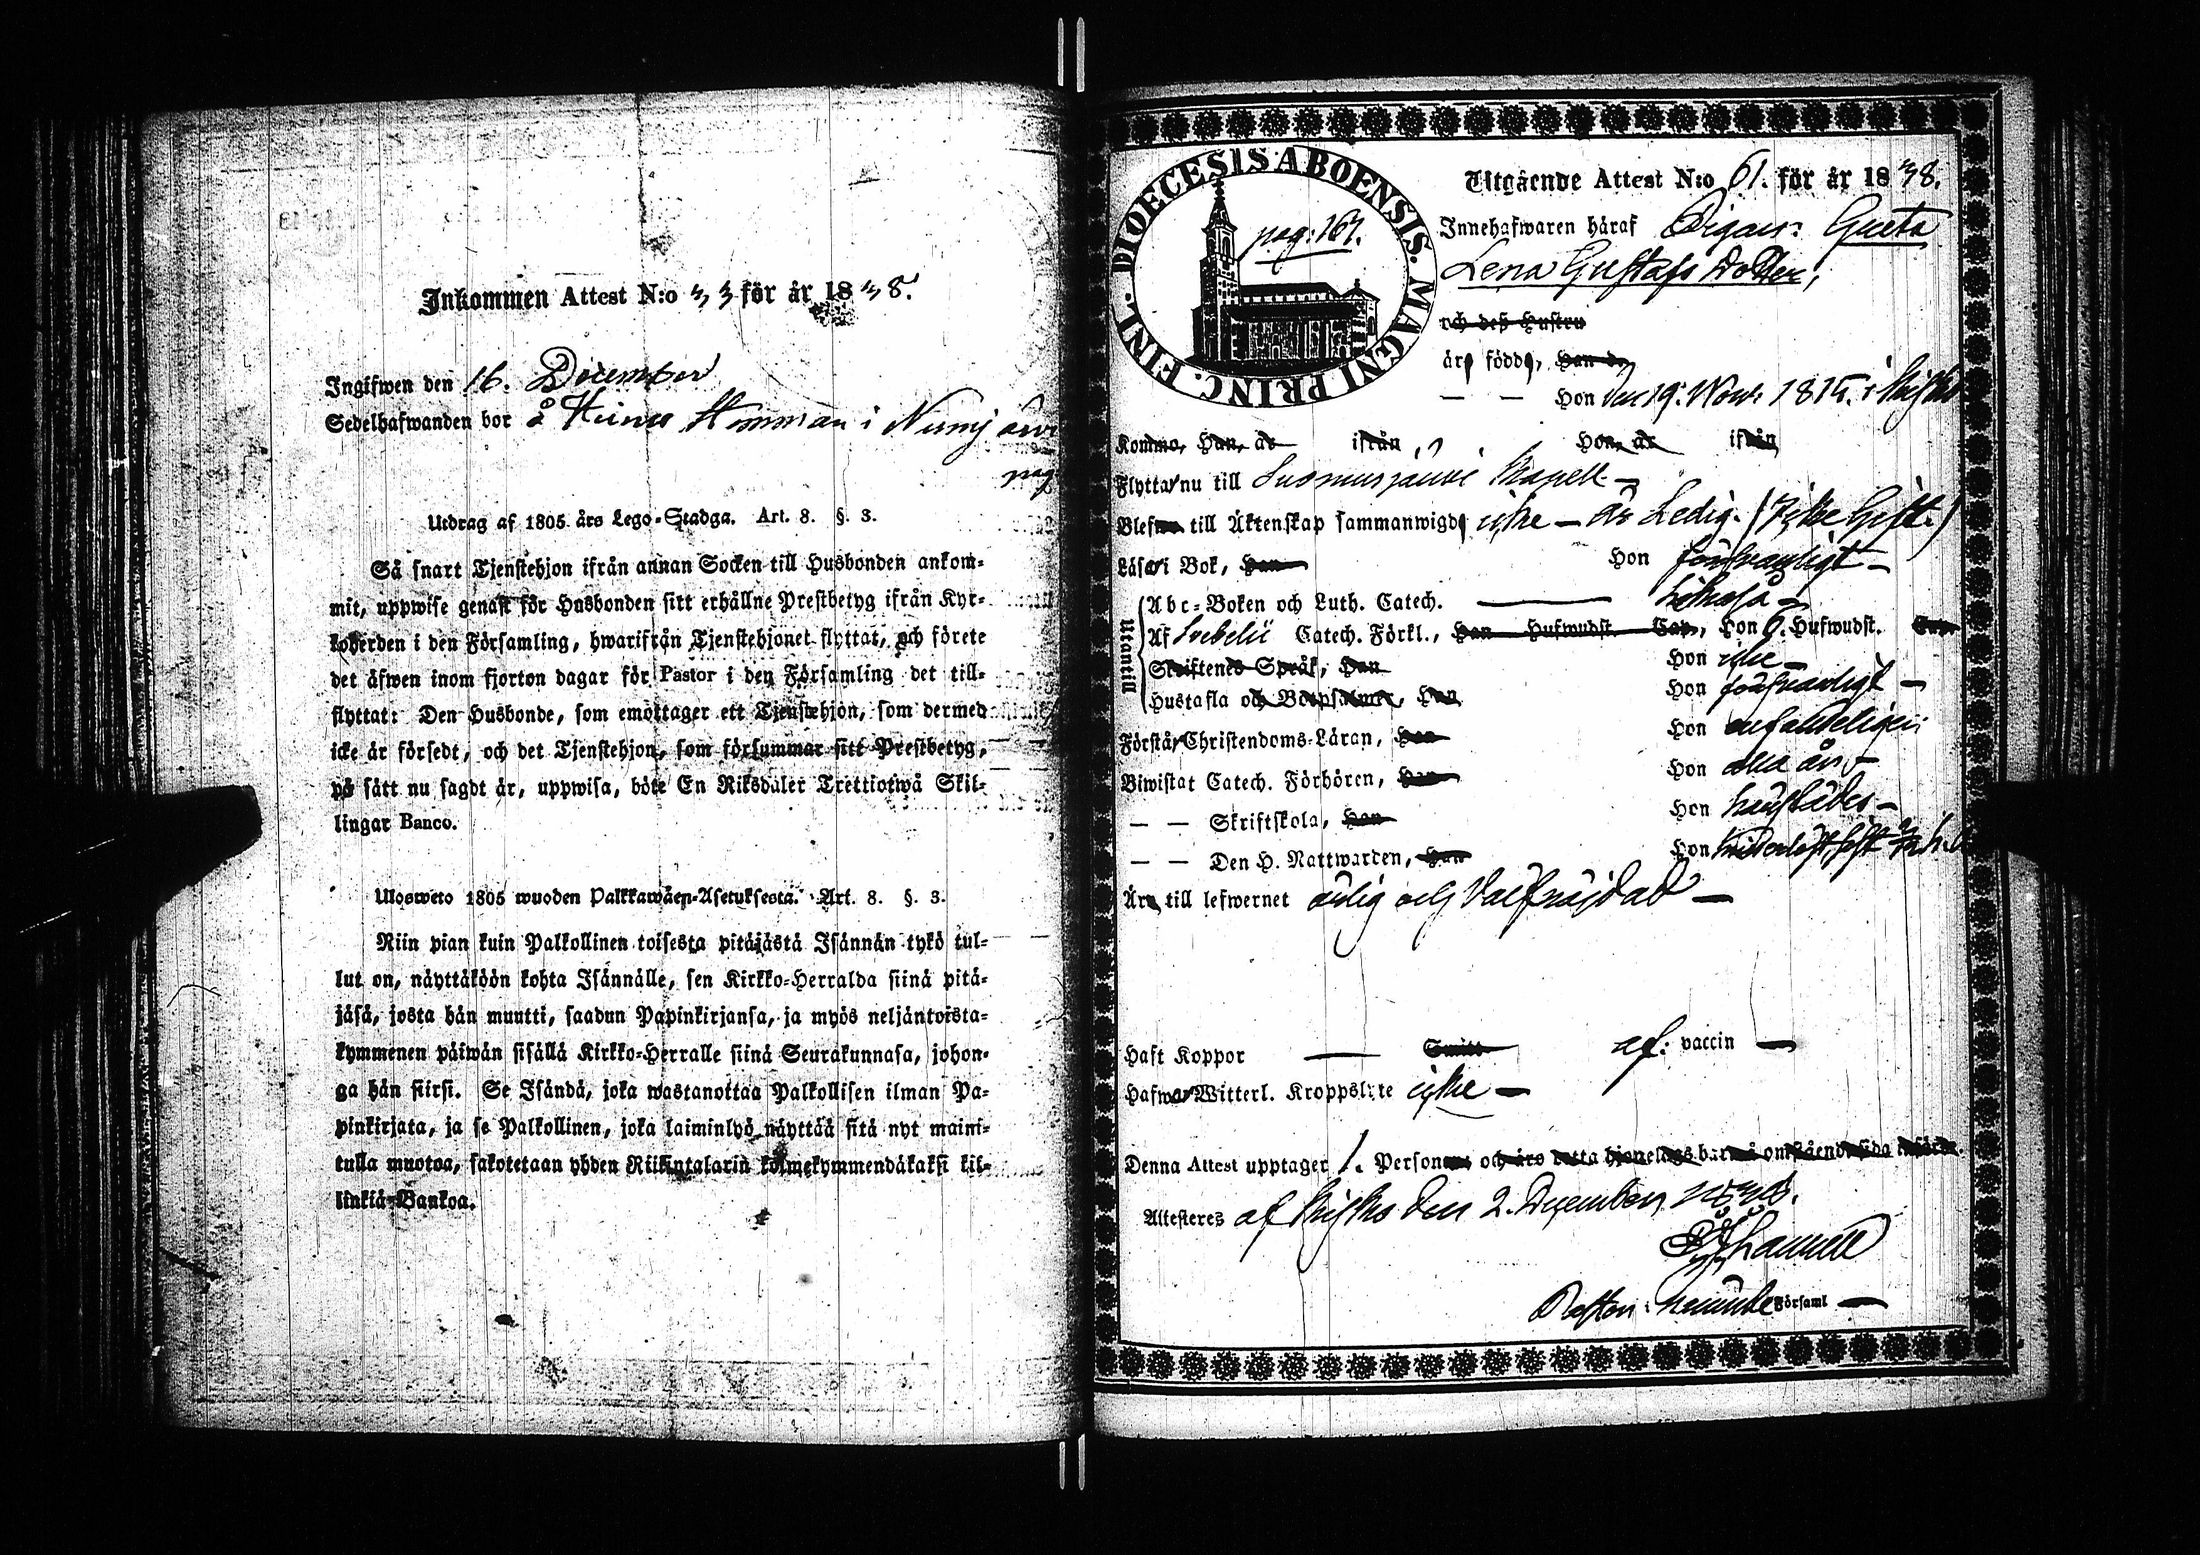 Inkommen Attest N:o 33 för år 1838.
Ingifwen den 16. December
Sedelhafwanden bor å Hemman i
pag
Utdrag af 1805 års Lego-Stadga. Art. 8. §. 3.
Så snart Tjenstehjon ifrån annan Socken till Husbonden ankom-
mit, uppwise genast för Husbonden sitt erhållne Prestbetyg ifrån Kyr-
koherden i den Församling, hwarifrån Tjenstehjonet flyttat, och förete
det äfwen inom fjorton dagar för Pastor i den Församling det till-
flyttat: Den Husbonde, som emottager ett Tjenstehjon, som dermed
icke är försedt, och det Tjenstehjon, som försummar sitt Prestbetyg,
på sätt nu sagdt är, uppwisa, böte En Riksdaler Trettiotwå Skil-
lingar Banco.
Ulosweto 1805 wuoden Palkkawäen-Asetuksesta. Art. 8. §. 3.
Niin pian kuin Palkollinen toisesta pitäjästä Isännän tykö tul-
lut on, näyttäköön kohta Isännälle, sen Kirkko-Herralda siinä pitä-
jäsä, josta hän muutti, saadun Papinkirjansa, ja myös neljäntoista-
kymmenen päiwän sisällä Kirkko-Herralle siinä Seurakunnasa, johon-
ga hän siirsi. Se Isändä, joka wastanottaa Palkollisen ilman Pa-
pinkirjata, ja se Palkollinen, joka laiminlyö näyttää sitä nyt maini-
tulla muotoa, sakotetaan yhden Riikintalarin kolmekymmendäkaksi kil-
linkiä Bankoa.
DIOECESIS ABOENSIS. MAGNI PRINC. FINL.
pag: 167.
Utgående Attest N:o 61. för år 1838.
Innehafwaren häraf Pigan: Greta
Lena Gustafs Dotter,
och deß Hustru
äro födde, Han d.
— — Hon den 19. Nov. 1815. i Kisko
Kommo, Han, år ifrån Hon, år ifrån
Flytta nu till Suomusjärvi Kapell —
Blefwo till Äktenskap sammanwigde icke — är Ledig. (Icke Gift.)
Läsa i Bok, Han Hon försvarligt —
Utantill
Abc-Boken och Luth. Catech. likaså —
Af Svebelii Catech. Förkl., Han Hufwudst. Cap., Hon 6. Hufwudst. Cap.
Skriftenes Språk, Han Hon icke —
Hustafla och Botpsalmer, Han Hon försvarligt —
Förstå Christendoms-Läran, Han Hon
Biwistat Catech. Förhören, Han Hon alla år —
— — Skriftskola, Han Hon
— — Den H. Nattwarden, Han Hon
Äro till lefwernet ärlig och välfräjdad —
Haft Koppor — Smitt af: vaccin —
Hafwa Witterl. Kroppslyte icke —
Denna Attest upptager 1. Personer och äro detta hjonelags barn å omstående sida införde.
Attesteres af Kisko den 2. December 1838.
Pastor i Församl —